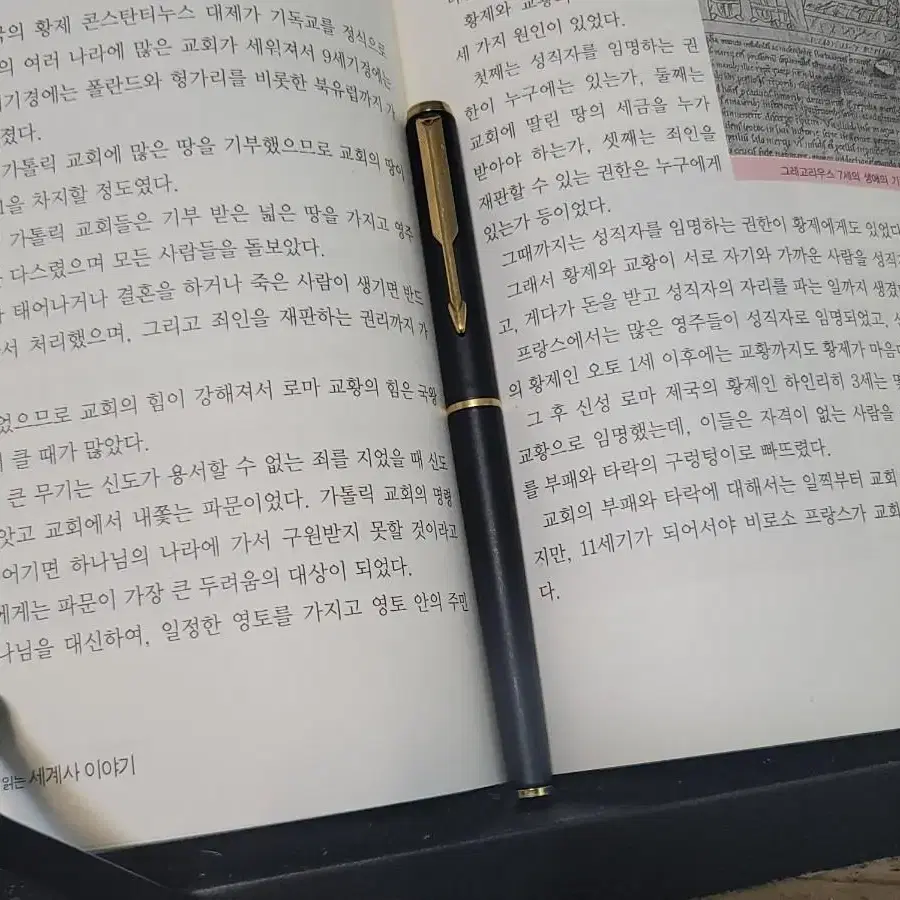 황제 콘스탄티누스 대제가 기독교를 정식으로
의 여러 나라에 많은 교회가 세워져서 9세기경에는
기경에는 폴란드와 헝가리를 비롯한 북유럽까지
졌다.
가톨릭 교회에 많은 땅을 기부했으므로 교회의 땅이
을 차지할 정도였다.
가톨릭 교회들은 기부 받은 넓은 땅을 가지고 영주
다스렸으며 모든 사람들을 돌보았다.
태어나거나 결혼을 하거나 죽은 사람이 생기면 반드
서 처리했으며, 그리고 죄인을 재판하는 권리까지 가
었으므로 교회의 힘이 강해져서 로마 교황의 힘은 국왕
클 때가 많았다.
큰 무기는 신도가 용서할 수 없는 죄를 지었을 때 신도
앗고 교회에서 내쫓는 파문이었다. 가톨릭 교회의 명령
어기면 하나님의 나라에 가서 구원받지 못할 것이라고
에게는 파문이 가장 큰 두려움의 대상이 되었다.
나님을 대신하여, 일정한 영토를 가지고 영토 안의 주민
읽는 세계사 이야기
황제와
세 가지 원인이 있었다.
첫째는 성직자를 임명하는 권
한이 누구에는 있는가, 둘째는
교회에 딸린 땅의 세금을 누가
받아야 하는가, 셋째는 죄인을
재판할 수 있는 권한은 누구에게
있는가 등이었다.
그레고리우스 7세의 생애의
그때까지는 성직자를 임명하는 권한이 황제에게도 있었다
그래서 황제와 교황이 서로 자기와 가까운 사람을 성직
고, 게다가 돈을 받고 성직자의 자리를 파는 일까지 생겼
프랑스에서는 많은 영주들이 성직자로 임명되었고,
의 황제인 오토 1세 이후에는 교황까지도 황제가 마음
그 후 신성 로마 제국의 황제인 하인리히 3세는
교황으로 임명했는데, 이들은 자격이 없는 사람을
를 부패와 타락의 구렁텅이로 빠뜨렸다.
교회의 부패와 타락에 대해서는 일찍부터 교회
지만, 11세기가 되어서야 비로소 프랑스가 교회
다.